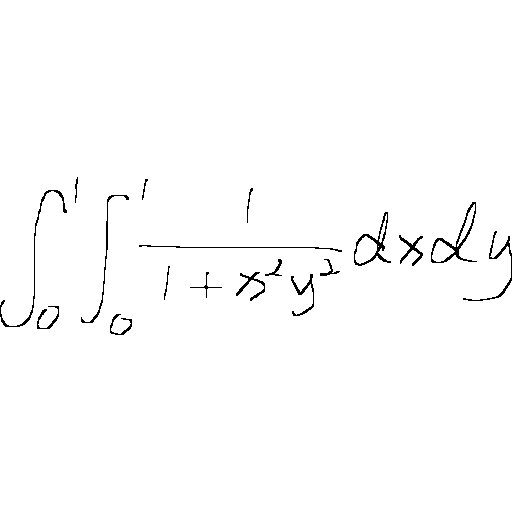 ∫₀¹ ∫₀¹ 1/(1+x²y²) dx dy